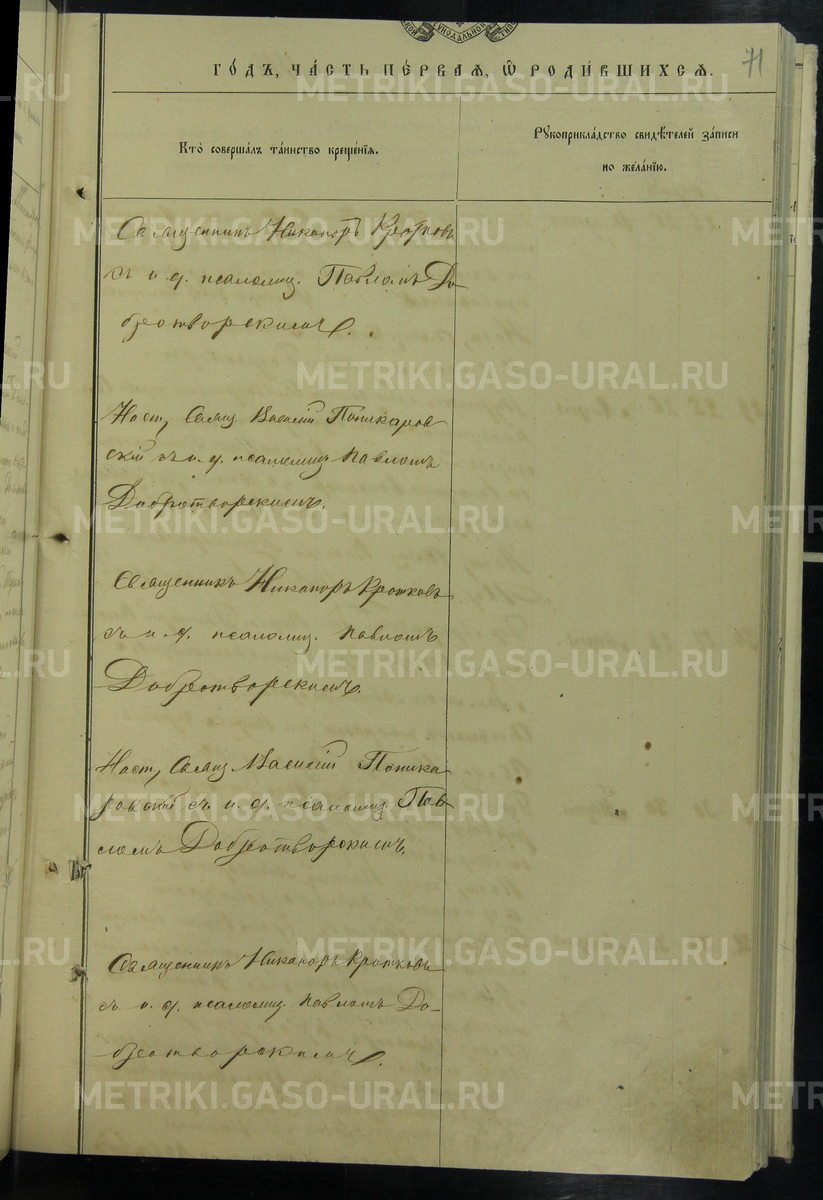 71
ГО́ДЪ, ЧА́СТЬ ПЕ́РВАЯ, Ѡ҆ РОДИ́ВШИХСѦ.
Кто̀ соверша́лъ та́инство креще́нїѧ.
Рꙋкоприкла́дство свидѣ́телей за́писи
по жела́нїю.
Священникъ Никаноръ Кротковъ
съ и. д. псаломщ. Павломъ До-
бротворскимъ.
Наст, Свящ. Василій Поликаров
скій съ и. д. псаломщ Павломъ
Добротворскимъ.
Священникъ Никаноръ Кротковъ
съ и. д. псаломщ. Павломъ
Добротворскимъ.
Наст, Свящ Василій Полика
ровскій съ и. д. псаломщ Пав
ломъ Добротворскимъ.
Священникъ Никаноръ Кротковъ
съ и. д. псаломщ. Павломъ До-
бротворскимъ.
METRIKI.GASO-URAL.RU